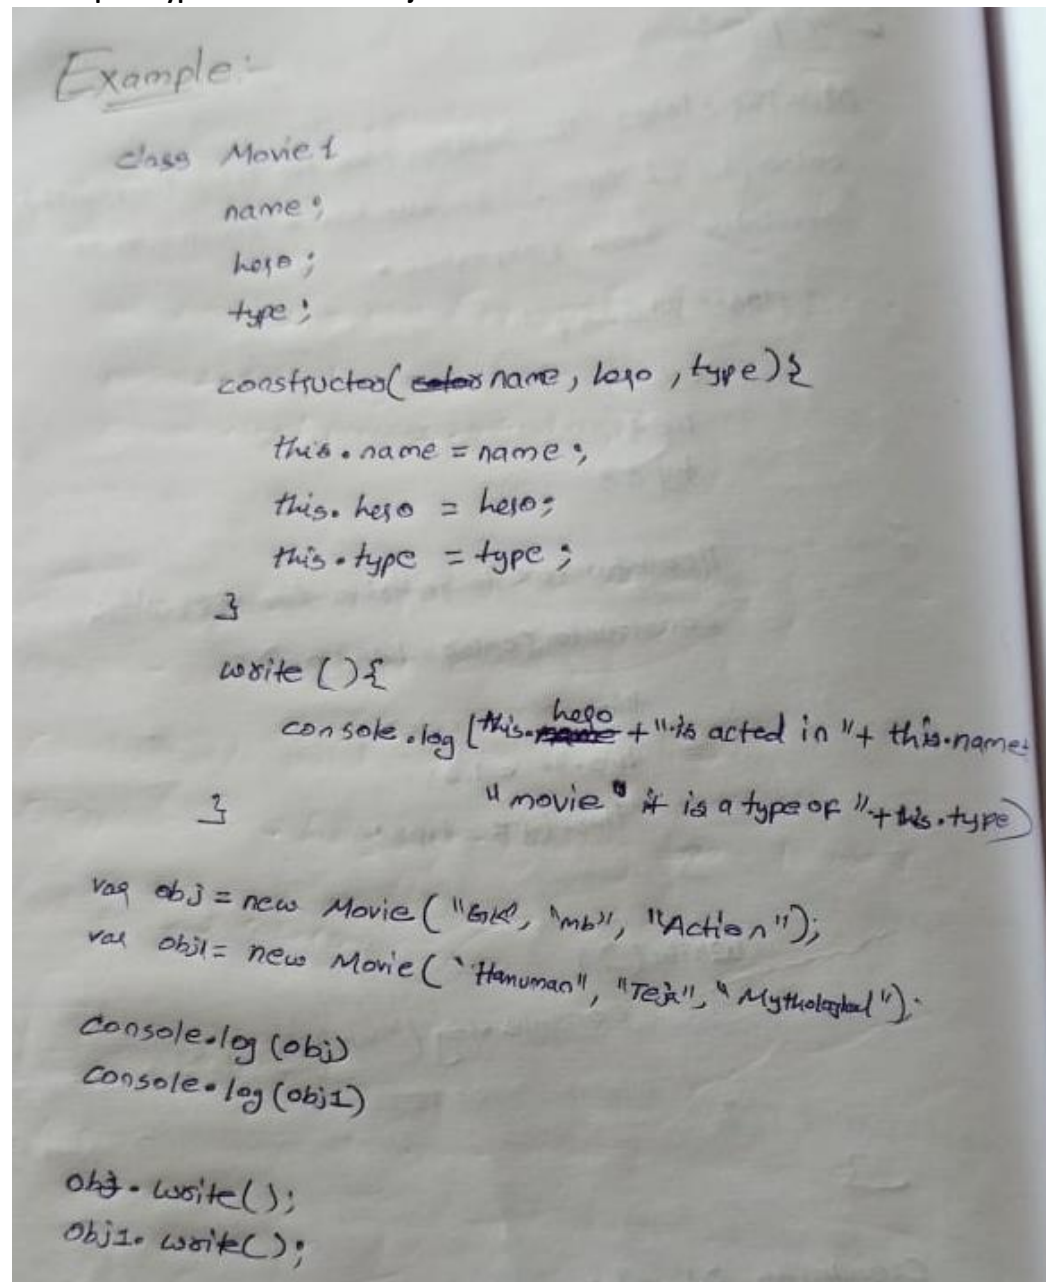 Example:-
class Movie{
name;
hero;
type;
constructor(name, hero, type){
this.name = name;
this.hero = hero;
this.type = type;
}
write(){
console.log(this.hero + "is acted in "+ this.name+
"movie" it is a type of "+this.type)
}
var obj = new Movie(" ", "mb", "Action");
var obj1 = new Movie("Hanuman", "Teja", "Mythological");
console.log(obj)
console.log(obj1)
obj.write();
obj1.write();